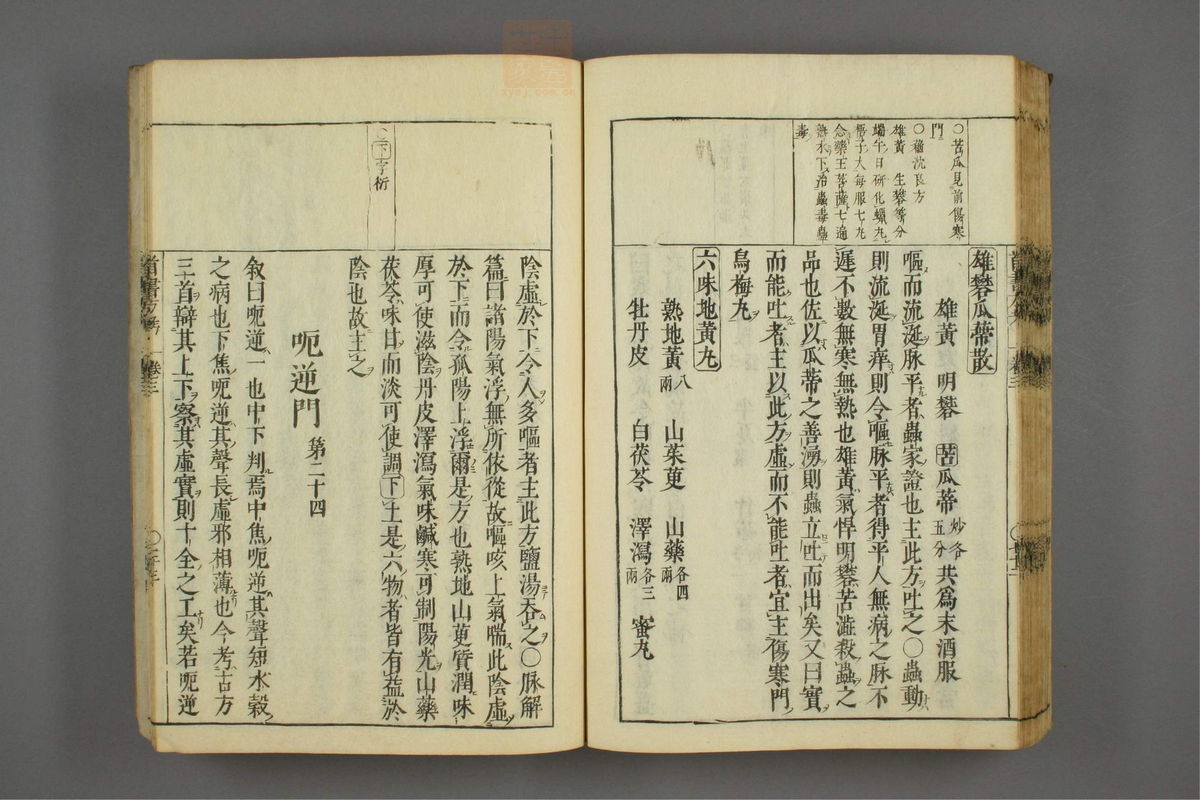 雄礬瓜蒂散
雄黃 明礬 苦瓜蒂炒各五分 共爲末酒服
嘔而流涎脉平者蟲家證也主此方吐之〇蟲動
則流涎胃痒則令嘔脉平者得平人無病之脉不
遲不數無寒無熱也雄黃氣悍明礬苦澁殺蟲之
品也佐以瓜蒂之善湧則蟲立吐而出矣又曰實
而能吐者主以此方虛而不能吐者宜主傷寒門
烏梅丸
六味地黃丸
熟地黃八兩 山茱萸 山藥各四兩
牡丹皮 白茯苓 澤瀉各三兩 蜜丸
〇苦瓜見前傷寒
門
〇種沈良方
雄黃 生礬等分
端午日研化蠟丸
梧子大每服七丸
念藥王菩薩七遍
熟水下治蠱毒蠱
毒
陰虛於下令人多嘔者主此方鹽湯吞之〇脉解
篇曰諸陽氣浮無所依從故嘔咳上氣喘此陰虛
於下而令孤陽上浮爾是方也熟地山萸質潤味
厚可使滋陰丹皮澤瀉氣味鹹寒可制陽光山藥
茯苓味甘而淡可使調下土是六物者皆有益於
陰也故主之
呃逆門 第二十四
敘曰呃逆一也中下判焉中焦呃逆其聲短水穀
之病也下焦呃逆其聲長虛邪相薄也今考古方
三首辯其上下察其虛實則十全之工矣若呃逆
下字衍
卷三
卷三